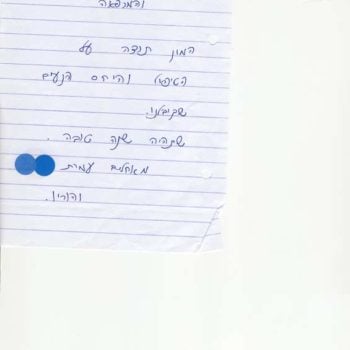 והמרפאה
המון תודה על
הטיפול והיחס הנעים
שקיבלנו.
שתהיה שנה טובה.
מאחלים עמית
והורין.